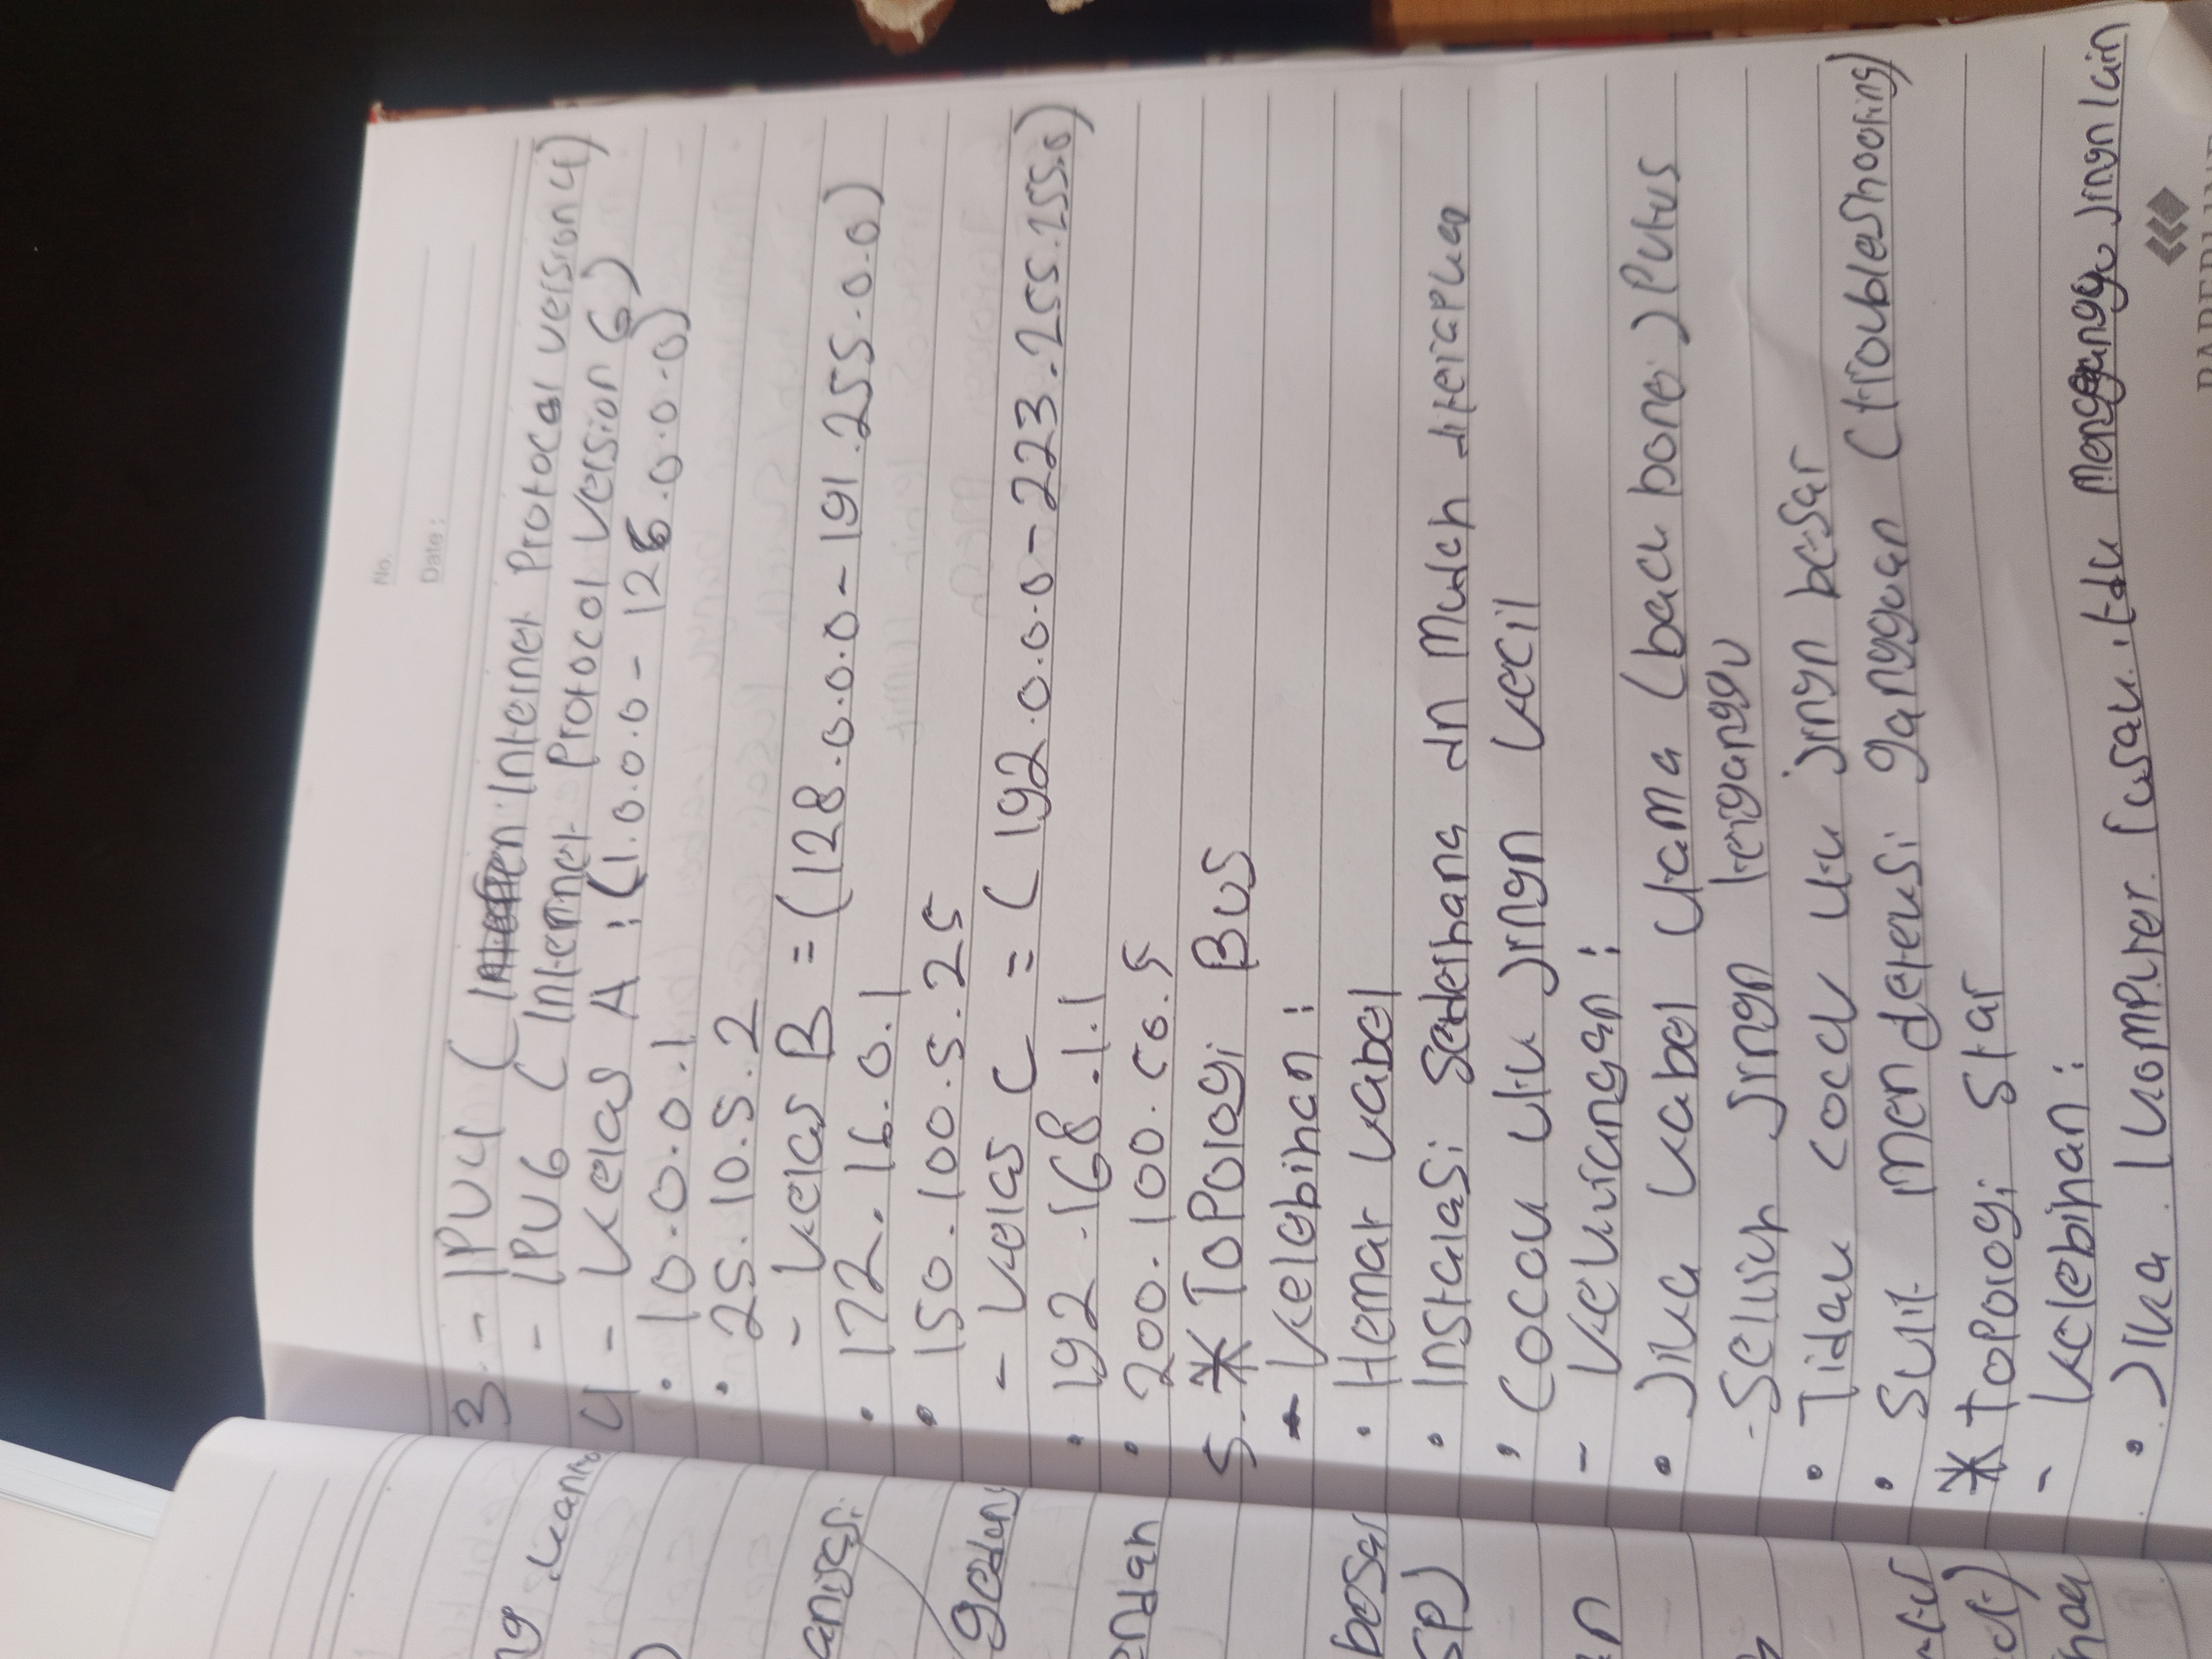 No.
Date :
3. - IPV4 ( Internet Protocol version 4)
- IPV6 ( Internet Protocol Version 6)
4 - Kelas A : (1.0.0.0 - 126.0.0.0)
• 10.0.0.1
• 25.10.5.2
- Kelas B = (128.0.0.0 - 191.255.0.0)
• 172.16.0.1
• 150.100.5.25
- Kelas C = ( 192.0.0.0 - 223.255.255.0)
• 192.168.1.1
• 200.100.50.5
5. * Topologi Bus
- Kelebihan :
• Hemat kabel
• Instalasi sederhana dn mudah diterapkan
• Cocok utk jrngn kecil
- Kekurangan :
• Jika kabel utama (back bone) putus
- Seluruh jrngn terganggu
• Tidak cocok utk jrngn besar
• Sulit mendeteksi gangguan (troubleshooting)
* Topologi Star
- Kelebihan :
• Jika 1 komputer rusak, tdk mengganggu jrngn lain
ng kanto
)
anisasi
gedung
endan
besar
SP)